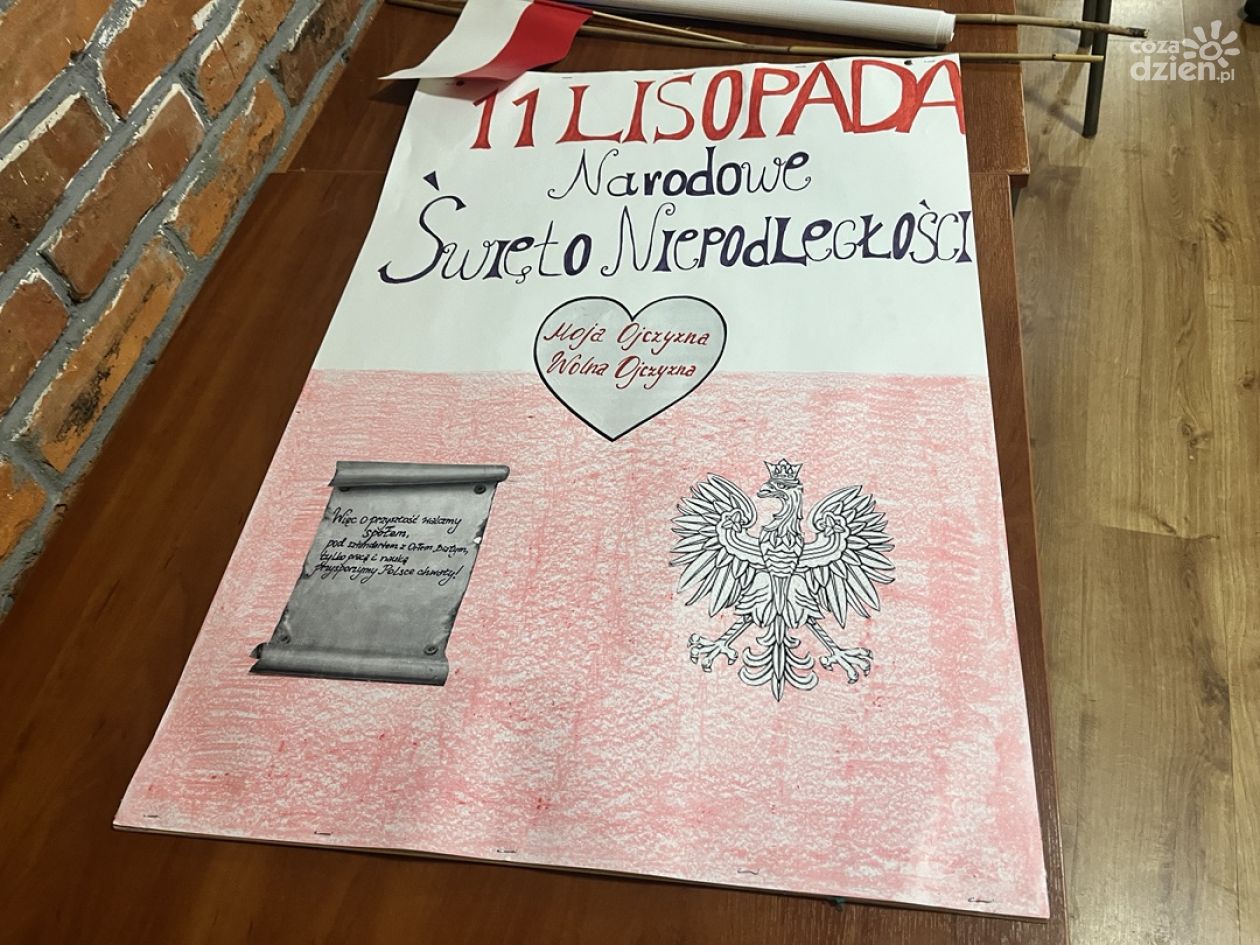 coza
dzien.pl
11 LISOPADA
Narodowe
Święto Niepodległości
Moja Ojczyzna
Wolna Ojczyzna
Więc o przyszłość walczmy
społem,
pod sztandarem z Orłem Białym,
tylko pracą i nauką
przysporzymy Polsce chwały!